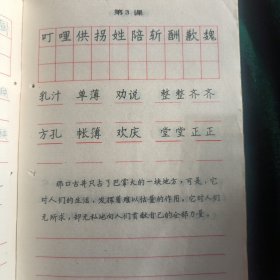 第3课
叮 哩 供 拐 姓 陪 斩 酬 歉 魏
乳汁 单薄 劝说 整整齐齐
方孔 帐簿 欢庆 堂堂正正
那口古井只占了巴掌大的一块地方，可是，它
对人们的生活，发挥着难以估量的作用。它对人们
无所求，却无私地向人们贡献自己的全部力量。